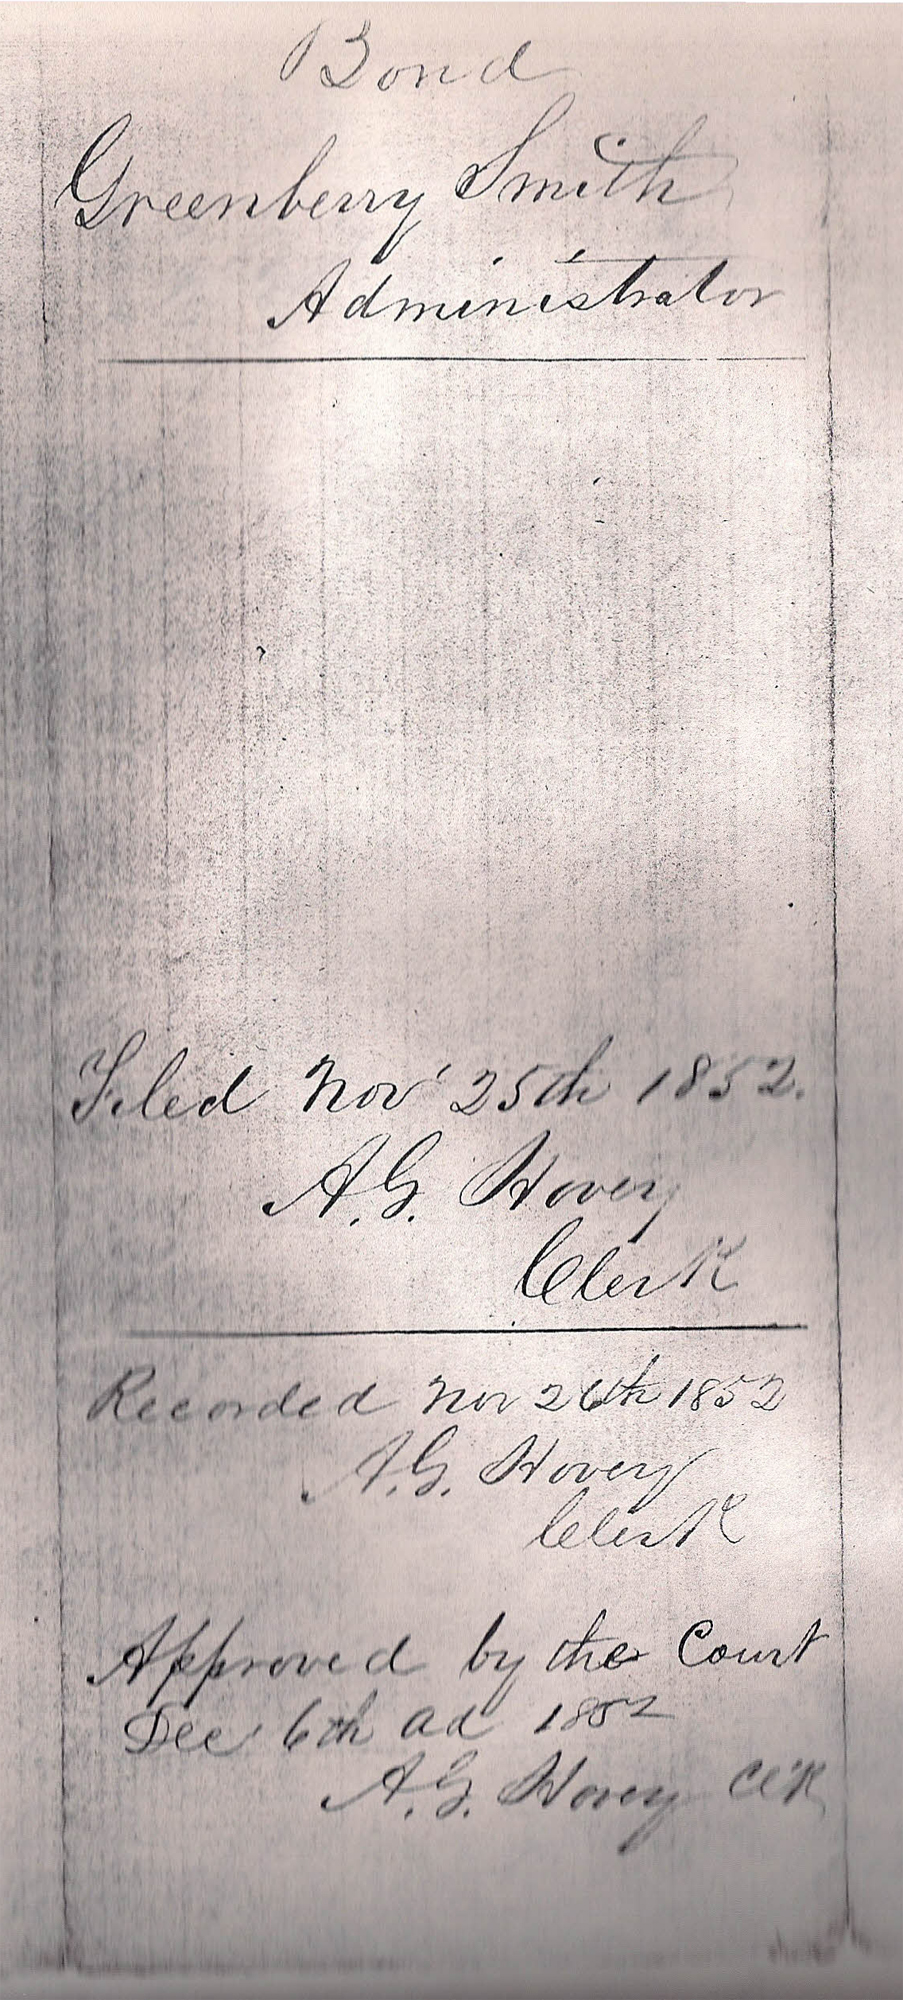 Bond
Greenberry Smith
Administrator
Filed Nov' 25th 1852.
A.G. Hovey
Clerk
Recorded Nov 26th 1852
A.G. Hovey
Clerk
Approved by the Court
Dec 6th ad 1852
A.G. Hovey Cl'k